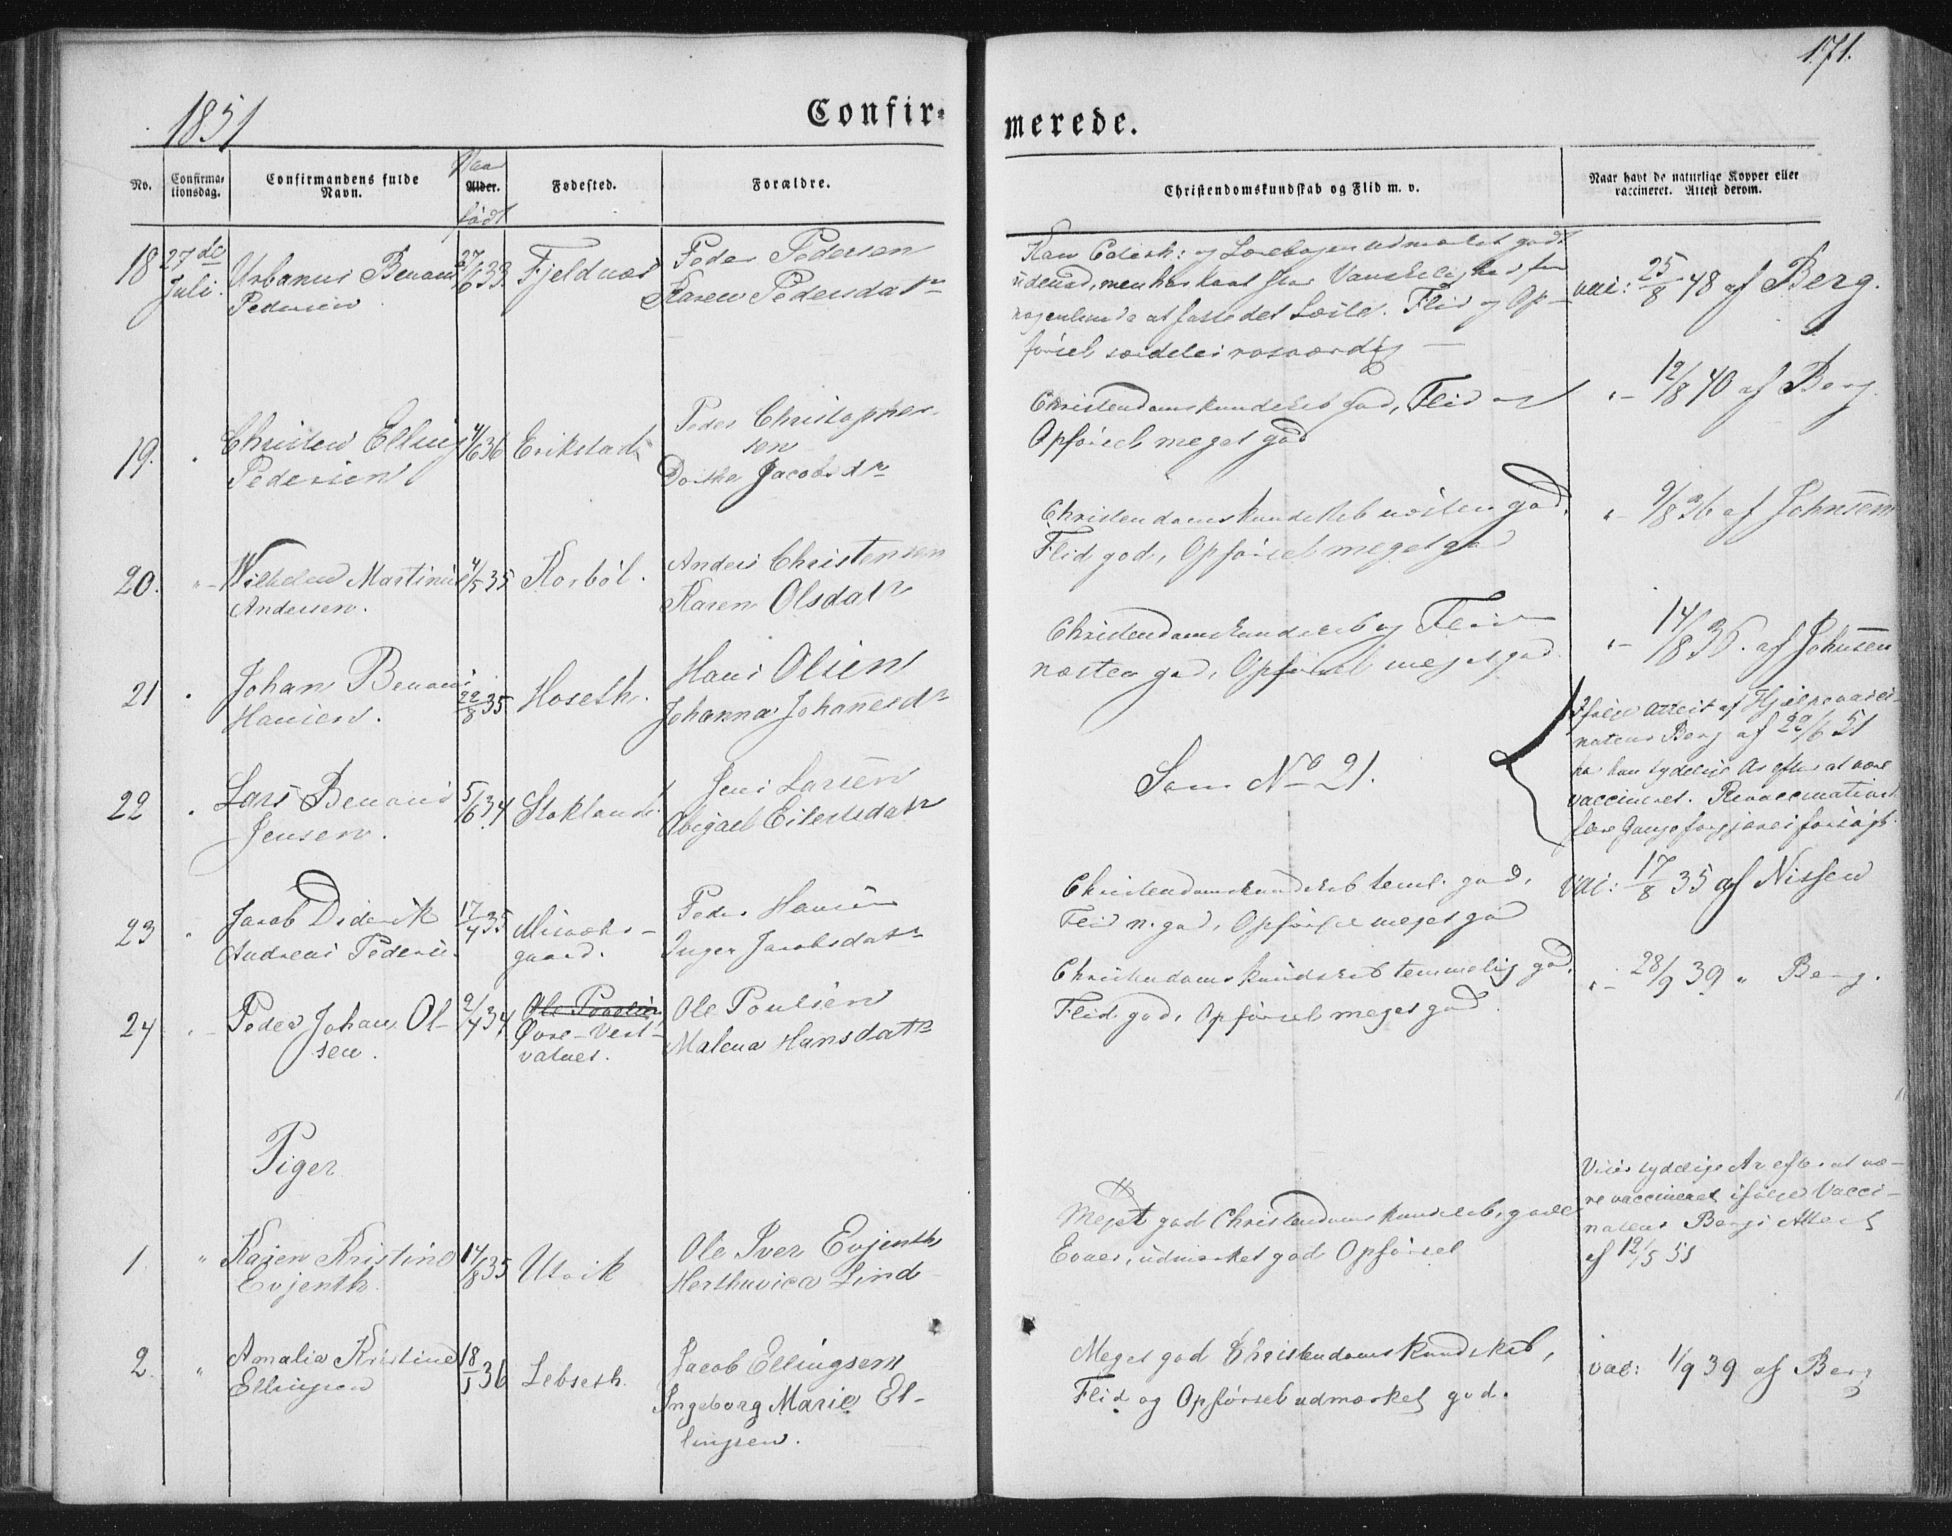 171.
1851
Confir-
merede.
No.
Confirma-
tionsdag.
Confirmandens fulde
Navn.
Naar
Alder.
født
Fødested.
Forældre.
Christendomskundskab og Flid m. v.
Naar havt de naturlige Kopper eller
vaccineret. Attest derom.
18 27de Juli. Urbanus Benoni
Pedersen
27/6 33 Fjeldnæs
Peder Pedersen
Karen Pedersdatr
Kan Catech: og Lærebogen udmærket godt
udenad, men har havt stor Vanskelighed for
nogenlunde at fatte det Læste. Flid og Op-
førsel særdeles rosværdig
vac: 25/8 48 af Berg.
19. " Christen Elling
Pedersen
4/6 36 Erikstad
Peder Christopher-
sen
Dorthe Jacobsdr
Christendomskundskab god, Flid og
Opførsel meget god
" 12/8 40 af Berg
20. " Wilhelm Martinus
Andersen.
4/5 35 Korbøl.
Anders Christensen
Karen Olsdatr
Christendomskundskab næsten god.
Flid god, Opførsel meget god
" 9/8 36 af Johnsen
21 " Johan Benoni
Hansen.
22/8 35 Hoseth.
Hans Olsen
Johanna Johannesdr
Christendomskundskab og Flid
næsten god, Opførsel meget god
" 14/8 36. af Johnsen
22 " Lars Benoni
Jensen.
5/6 34 Stokland
Jens Larsen
Abigael Eilertsdatr
Som No 21.
Ifølge Attest af Hjelpevacci-
nateur Berg af 22/6 51
har han tydelige Ar efter at være
vaccineret. Revaccination
flere Gange forgjæves forsøgt.
23 " Jacob Diderik
Andreas Pedersen.
17/4 35 Misvær-
gaard.
Peder Hansen
Inger Jacobsdatr
Christendomskundskab teml. god,
Flid n. god, Opførsel meget god
vac: 17/8 35 af Nissen
24 " Peder Johan Ol-
sen.
2/4 34 Ole Poulsen
Øvre-Vest-
vatnet.
Ole Poulsen
Malena Hansdatr
Christendomskundskab temmelig god,
Flid god, Opførsel meget god.
" 28/9 39 " Berg.
Piger
1. " Karen Kristine
Evjenth
14/8 35 Utvik
Ole Iver Evjenth
Lind
Meget god Christendomskundskab, gode
Evner, udmærket god Opførsel
Viser tydelige Ar efter at væ-
re vaccineret ifølge Vacci-
nateur Bergs Attest
af 12/5 51
2. " Amalia Kristine
Ellingsen
18/5 36 Lebseth
Jacob Ellingsen
Ingeborg Marie El-
lingsen.
Meget god Christendomskundskab,
Flid og Opførsel udmærket god.
vac: 1/9 39 af Berg